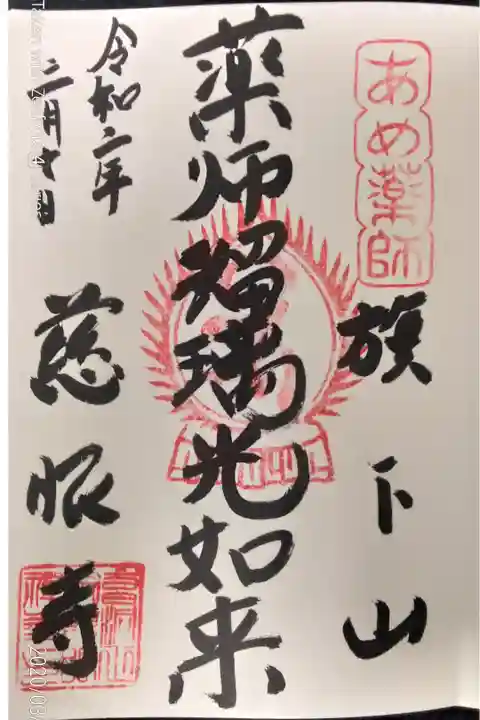 あめ薬師
旗下山
薬師瑠璃光如来
令和二年
二月七日
慈眼寺
2020/03